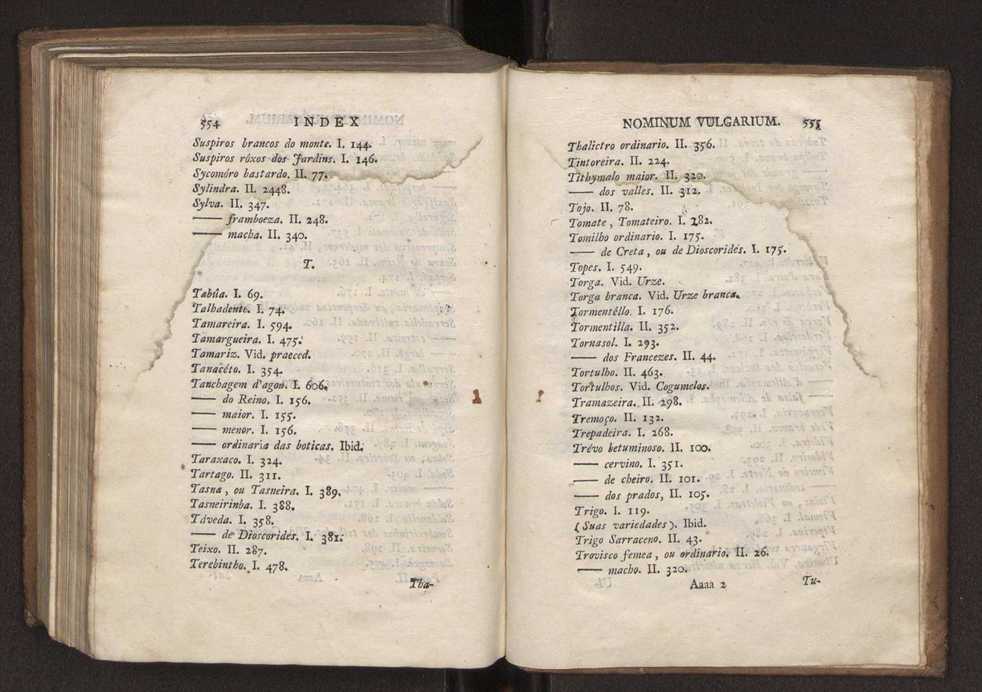 554 INDEX
Suspiros brancos do monte. I. 144.
Suspiros rôxos dos Jardins. I. 146.
Sycomóro bastardo. II. 77.
Sylindra. II. 2448.
Sylva. II. 347.
—— framboeza. II. 248.
—— macha. II. 340.
T.
Tabûa. I. 69.
Talhadente. I. 74.
Tamareira. I. 594.
Tamargueira. I. 475.
Tamariz. Vid. praeced.
Tanacéto. I. 354.
Tanchagem d'agoa. I. 606.
—— do Reino. I. 156.
—— maior. I. 155.
—— menor. I. 156.
—— ordinaria das boticas. Ibid.
Taraxaco. I. 324.
Tartago. II. 311.
Tasna, ou Tasneira. I. 389.
Tasneirinha. I. 388.
Táveda. I. 358.
—— de Dioscorides. I. 381.
Teixo. II. 287.
Terebintho. I. 478.
Tha-
NOMINUM VULGARIUM. 555
Thalictro ordinario. II. 356.
Tintoreira. II. 224.
Tithymalo maior. II. 320.
—— dos valles. II. 312.
Tojo. II. 78.
Tomate, Tomateiro. I. 282.
Tomilho ordinario. I. 175.
—— de Creta, ou de Dioscorides. I. 175.
Topes. I. 549.
Torga. Vid. Urze.
Torga branca. Vid. Urze branca.
Tormentêllo. I. 176.
Tormentilla. II. 352.
Tornasol. I. 293.
—— dos Francezes. II. 44.
Tortulho. II. 463.
Tortulhos. Vid. Cogumelos.
Tramazeira. II. 298.
Tremoço. II. 132.
Trepadeira. I. 268.
Trévo betuminoso. II. 100.
—— cervino. I. 351.
—— de cheiro. II. 101.
—— dos prados, II. 105.
Trigo. I. 119.
(Suas variedades). Ibid.
Trigo Sarraceno. II. 43.
Trovisco femea, ou ordinario. II. 26.
—— macho. II. 320.
Aaaa 2 Tu-